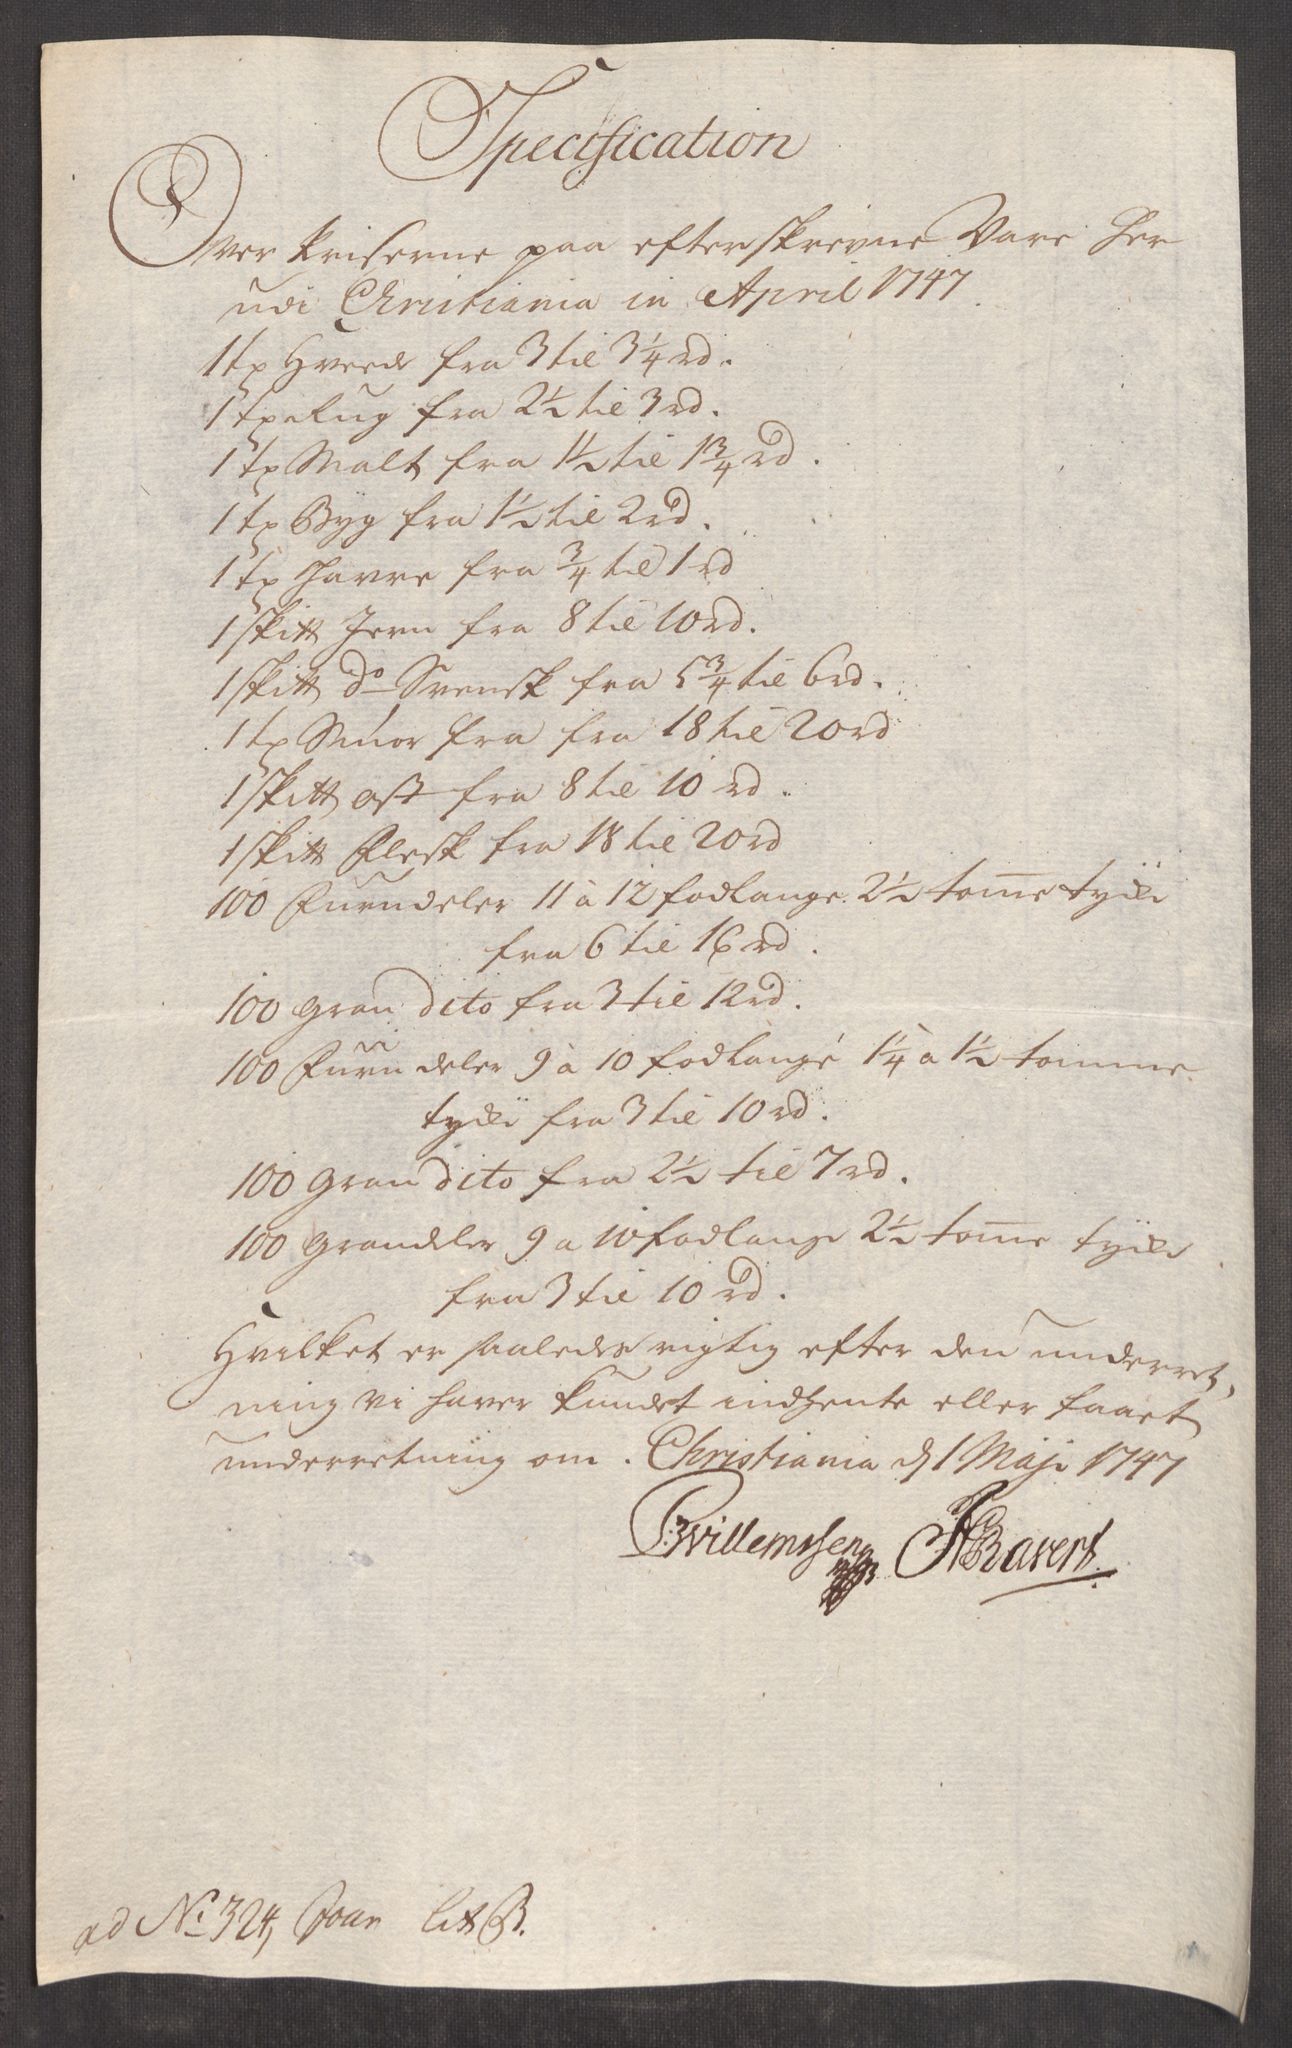 Specification
Over Priserne paa efterskrevne Vare her
udi Christiania in April 1747
1 tp Hveede fra 3 til 3 1/4 rd.
1 tp Rug fra 2 1/2 til 3 rd.
1 tp Malt fra 1 1/2 til 1 3/4 rd.
1 tp Byg fra 1 1/2 til 2 rd.
1 tp Havre fra 3/4 til 1 rd
1 skitt Jern fra 8 til 10 rd.
1 skitt do Svensk fra 5 3/4 til 6 rd.
1 tp Smør fra fra 18 til 20 rd
1 skitt ost fra 8 til 10 rd.
1 skitt Flesk fra 18 til 20 rd
100 Furudeler 11 a 12 fodlange 2 1/2 tome tyke
fra 6 til 16 rd.
100 gran dito fra 3 til 12 rd.
100 Furu deler 9 a 10 fodlange 1 1/4 a 1 1/2 tomme
tyke fra 3 til 10 rd.
100 gran dito fra 2 1/2 til 7 rd.
100 grandeler 9 a 10 fodlange 2 1/2 tome tyke
fra 3 til 10 rd.
Hvilket er saaledes rigtig efter den underret,
ning vi haver kundet indhente eller faaet
underretning om. Christiania d 1 Maji 1747
Willemssen Bavert
ad No 324, lit B.